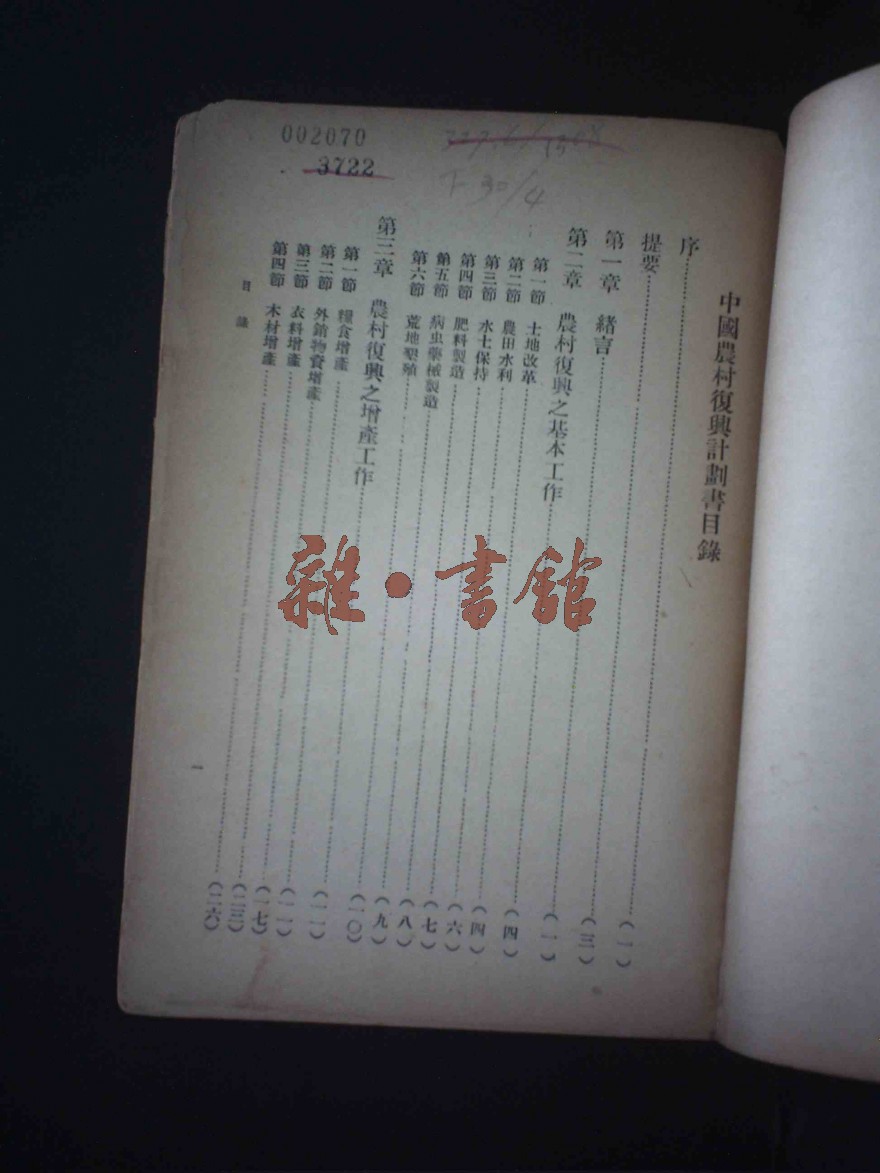 002070
3722
中國農村復興計劃書目錄
序……(一)
提要……(三)
第一章 緒言……(一)
第二章 農村復興之基本工作……(四)
第一節 土地改革……(四)
第二節 農田水利……(六)
第三節 水土保持……(七)
第四節 肥料製造……(八)
第五節 病虫藥械製造……(九)
第六節 荒地墾殖……(一〇)
第三章 農村復興之增產工作……(一一)
第一節 糧食增產……(一一)
第二節 外銷物資增產……(一七)
第三節 衣料增產……(二三)
第四節 木材增產……(二六)
目錄
一
雜·書館